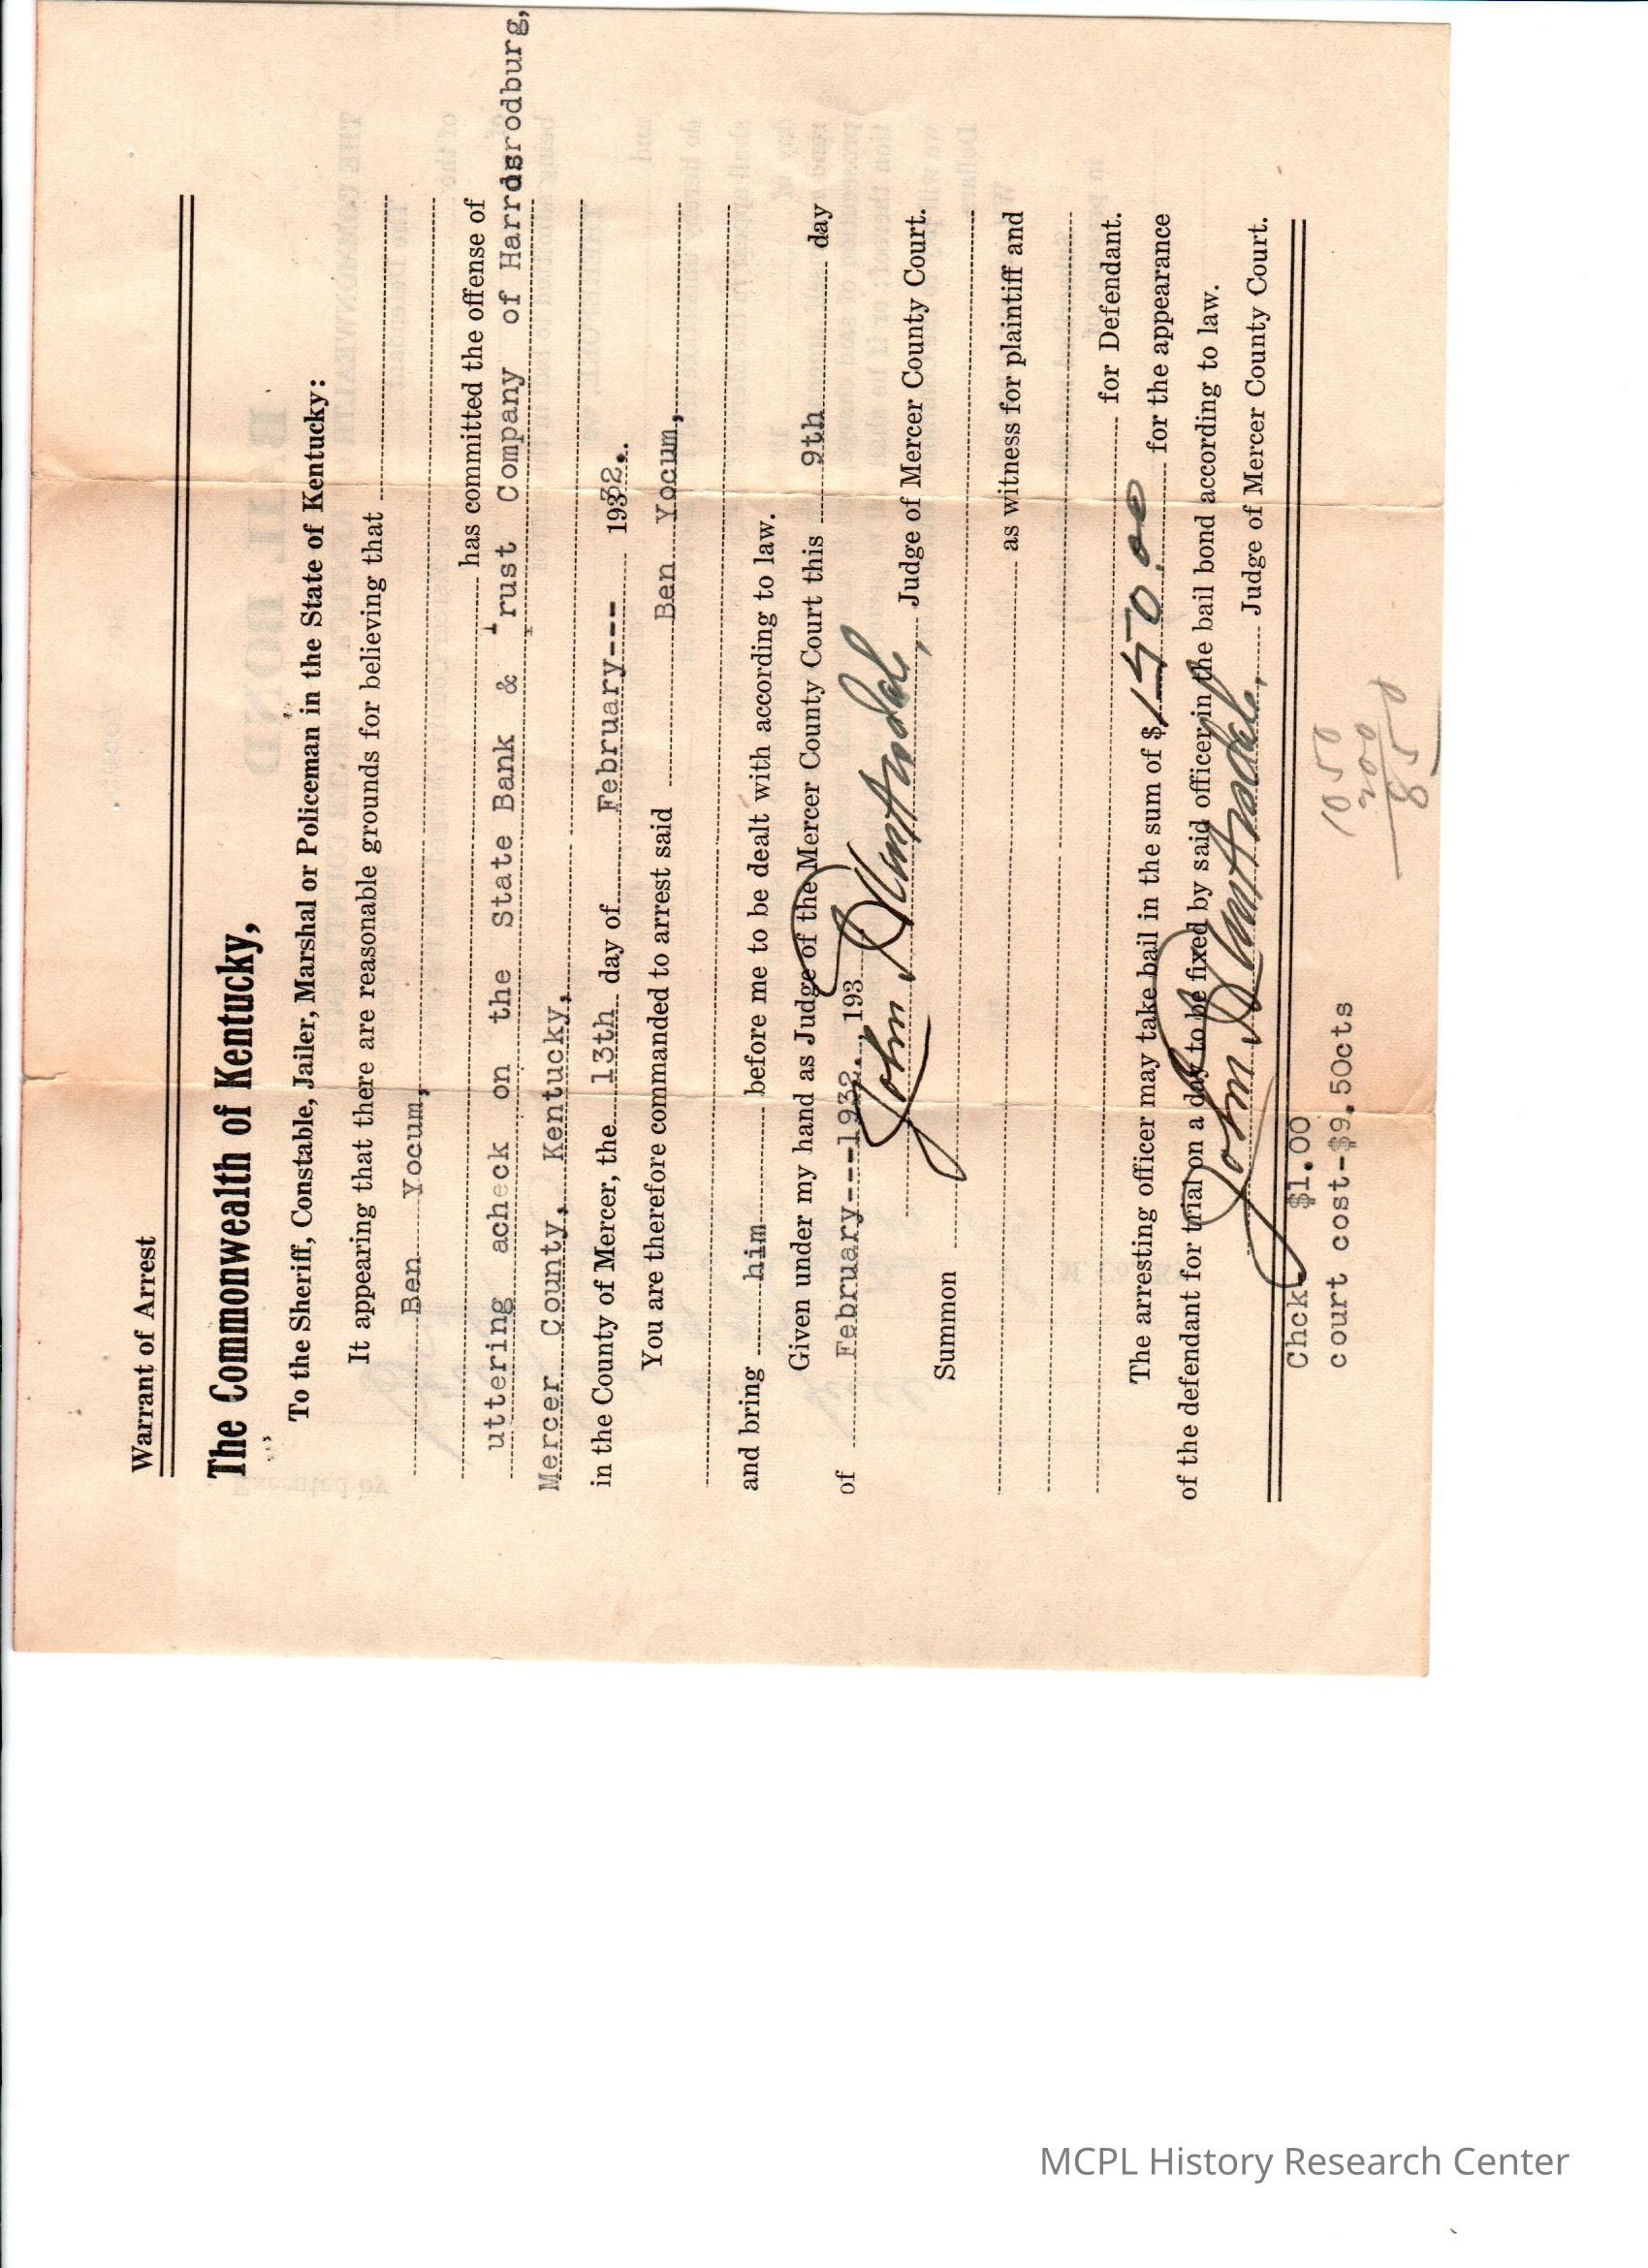 Warrant of Arrest
The Commonwealth of Kentucky,
To the Sheriff, Constable, Jailer, Marshal or Policeman in the State of Kentucky:
It appearing that there are reasonable grounds for believing that
Ben Yocum,
has committed the offense of
uttering acheck on the State Bank & Trust Company of Harrdsrodburg,
Mercer County, Kentucky,
in the County of Mercer, the 13th day of February--- 1932.
You are therefore commanded to arrest said Ben Yocum,
and bring him before me to be dealt with according to law.
Given under my hand as Judge of the Mercer County Court this 9th day
of February---1932., 193
John Judge of Mercer County Court.
Summon
as witness for plaintiff and
for Defendant.
The arresting officer may take bail in the sum of $150.00 for the appearance
of the defendant for trial on a day to be fixed by said officer in the bail bond according to law.
John Judge of Mercer County Court.
Chck. $1.00
court cost-$9.50cts
1050
200
850
MCPL History Research Center